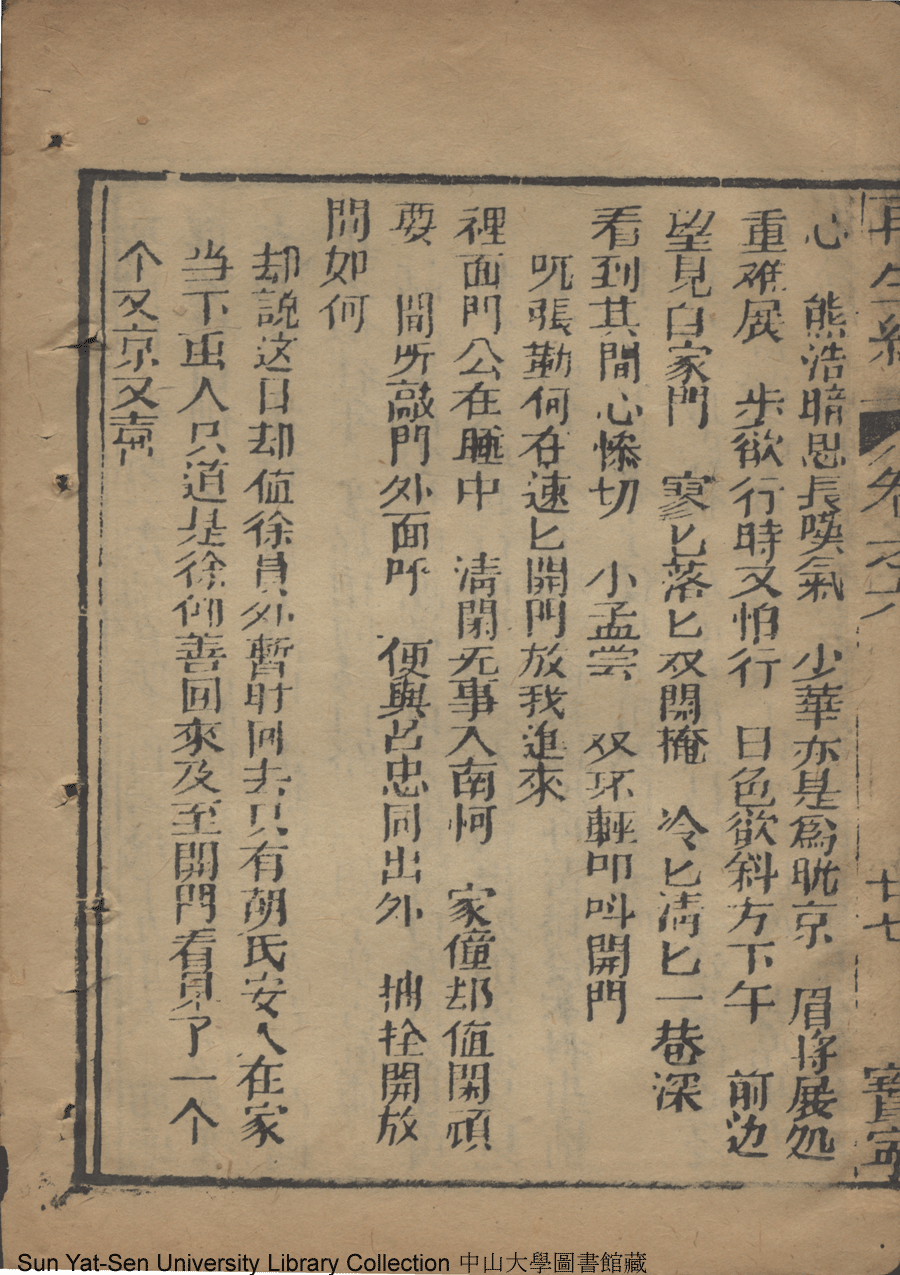 再生緣 卷之六 廿七 寶寧
心 熊浩暗思長嘆氣 少華亦是為眈京 眉將展処
重难展 步欲行時又怕行 日色欲斜方下午 前边
望見白家門 寥匕落匕双開掩 冷匕清匕一巷深
看到其間心惨切 小孟尝 双环輕叩呌開門
呒張勤何在速匕開門放我進來
裡面門公在睡中 清閑无事入南柯 家僮却值閑頑
耍 間所敲門外面呼 便與吕忠同出外 抽拴開放
問如何
却說这日却值徐員外暫时回去只有胡氏安人在家
当下両人只道是徐仰善回來及至開門看見了一个
个又京又喜
Sun Yat-Sen University Library Collection 中山大學圖書館藏